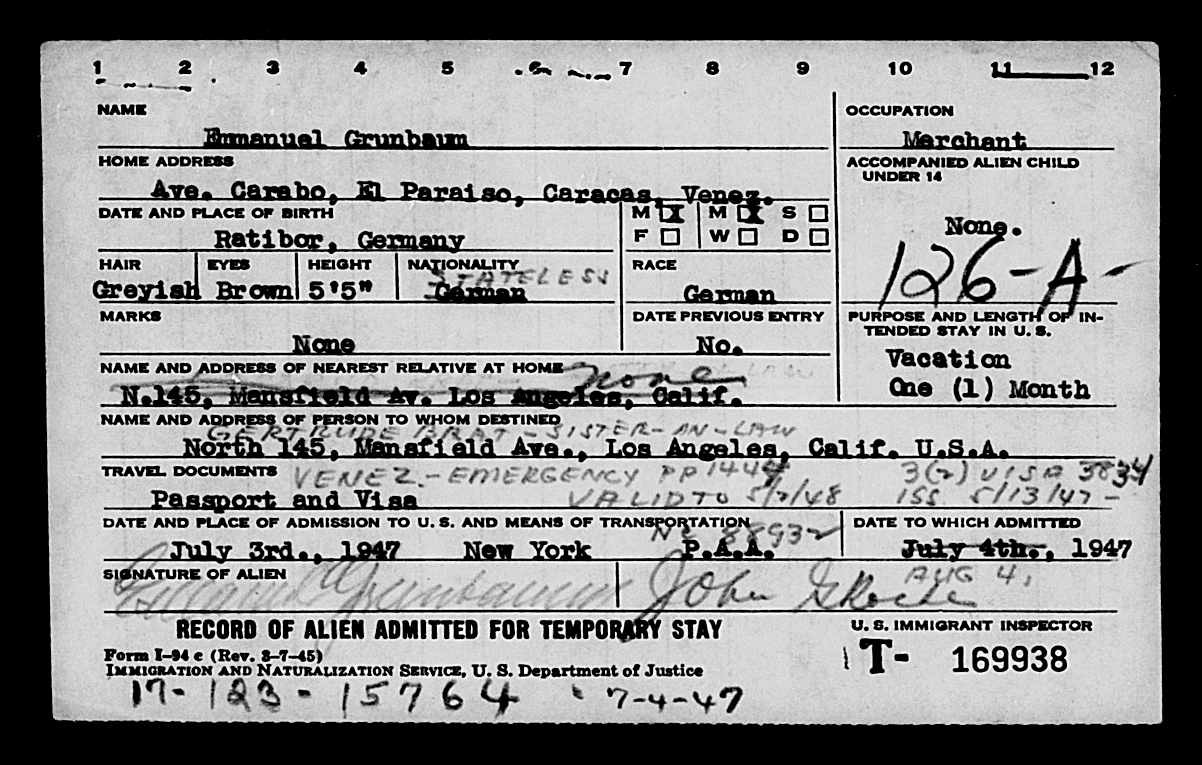 1 2 3 4 5 6 7 8 9 10 11 12
NAME
Emmanuel Grunbaum
OCCUPATION
Merchant
HOME ADDRESS
Ave. Carabo, El Paraiso, Caracas, Venez.
ACCOMPANIED ALIEN CHILD
UNDER 14
None.
126-A-
DATE AND PLACE OF BIRTH
Ratibor, Germany
M X F
M X S W D
HAIR
Greyish
EYES
Brown
HEIGHT
5'5"
NATIONALITY
STATELESS
German
RACE
German
MARKS
None
DATE PREVIOUS ENTRY
No.
PURPOSE AND LENGTH OF IN-
TENDED STAY IN U. S.
Vacation
One (1) Month
NAME AND ADDRESS OF NEAREST RELATIVE AT HOME
none
N.145, Mansfield Av. Los Angeles, Calif.
NAME AND ADDRESS OF PERSON TO WHOM DESTINED
GERTRUDE BRAT - SISTER-IN-LAW
North 145, Mansfield Ave., Los Angeles, Calif. U.S.A.
TRAVEL DOCUMENTS
VENEZ.- EMERGENCY PP 1444 3(2) VISA 3834
Passport and Visa
VALID TO 5/7/48 ISS 5/13/47-
DATE AND PLACE OF ADMISSION TO U. S. AND MEANS OF TRANSPORTATION
NC 88932
July 3rd., 1947 New York P.A.A.
DATE TO WHICH ADMITTED
July 4th., 1947
AUG 4,
SIGNATURE OF ALIEN
Grunbaum
John
U. S. IMMIGRANT INSPECTOR
RECORD OF ALIEN ADMITTED FOR TEMPORARY STAY
Form I-94 c (Rev. 3-7-45)
IMMIGRATION AND NATURALIZATION SERVICE, U. S. Department of Justice
T- 169938
17-123-15764 7-4-47